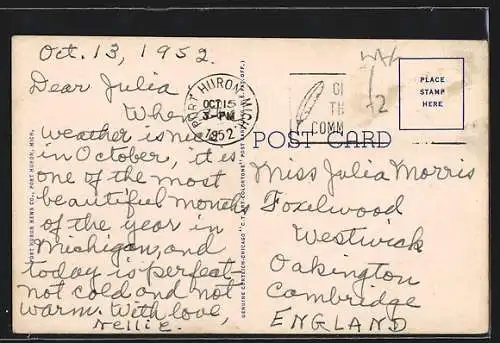 Oct. 13, 1952.
Dear Julia
When
weather is nice
in October, it is
one of the most
beautiful months
of the year in
Michigan, and
today is perfect-
not cold and not
warm. With love,
Nellie.
PORT HURON, MICH.
OCT 15
3-PM
1952
COMM
POST CARD
PLACE
STAMP
HERE
Miss Julia Morris
Foxelwood
Westwick
Oakington
Cambridge
ENGLAND
PORT HURON NEWS CO., PORT HURON, MICH.
GENUINE CURTEICH-CHICAGO